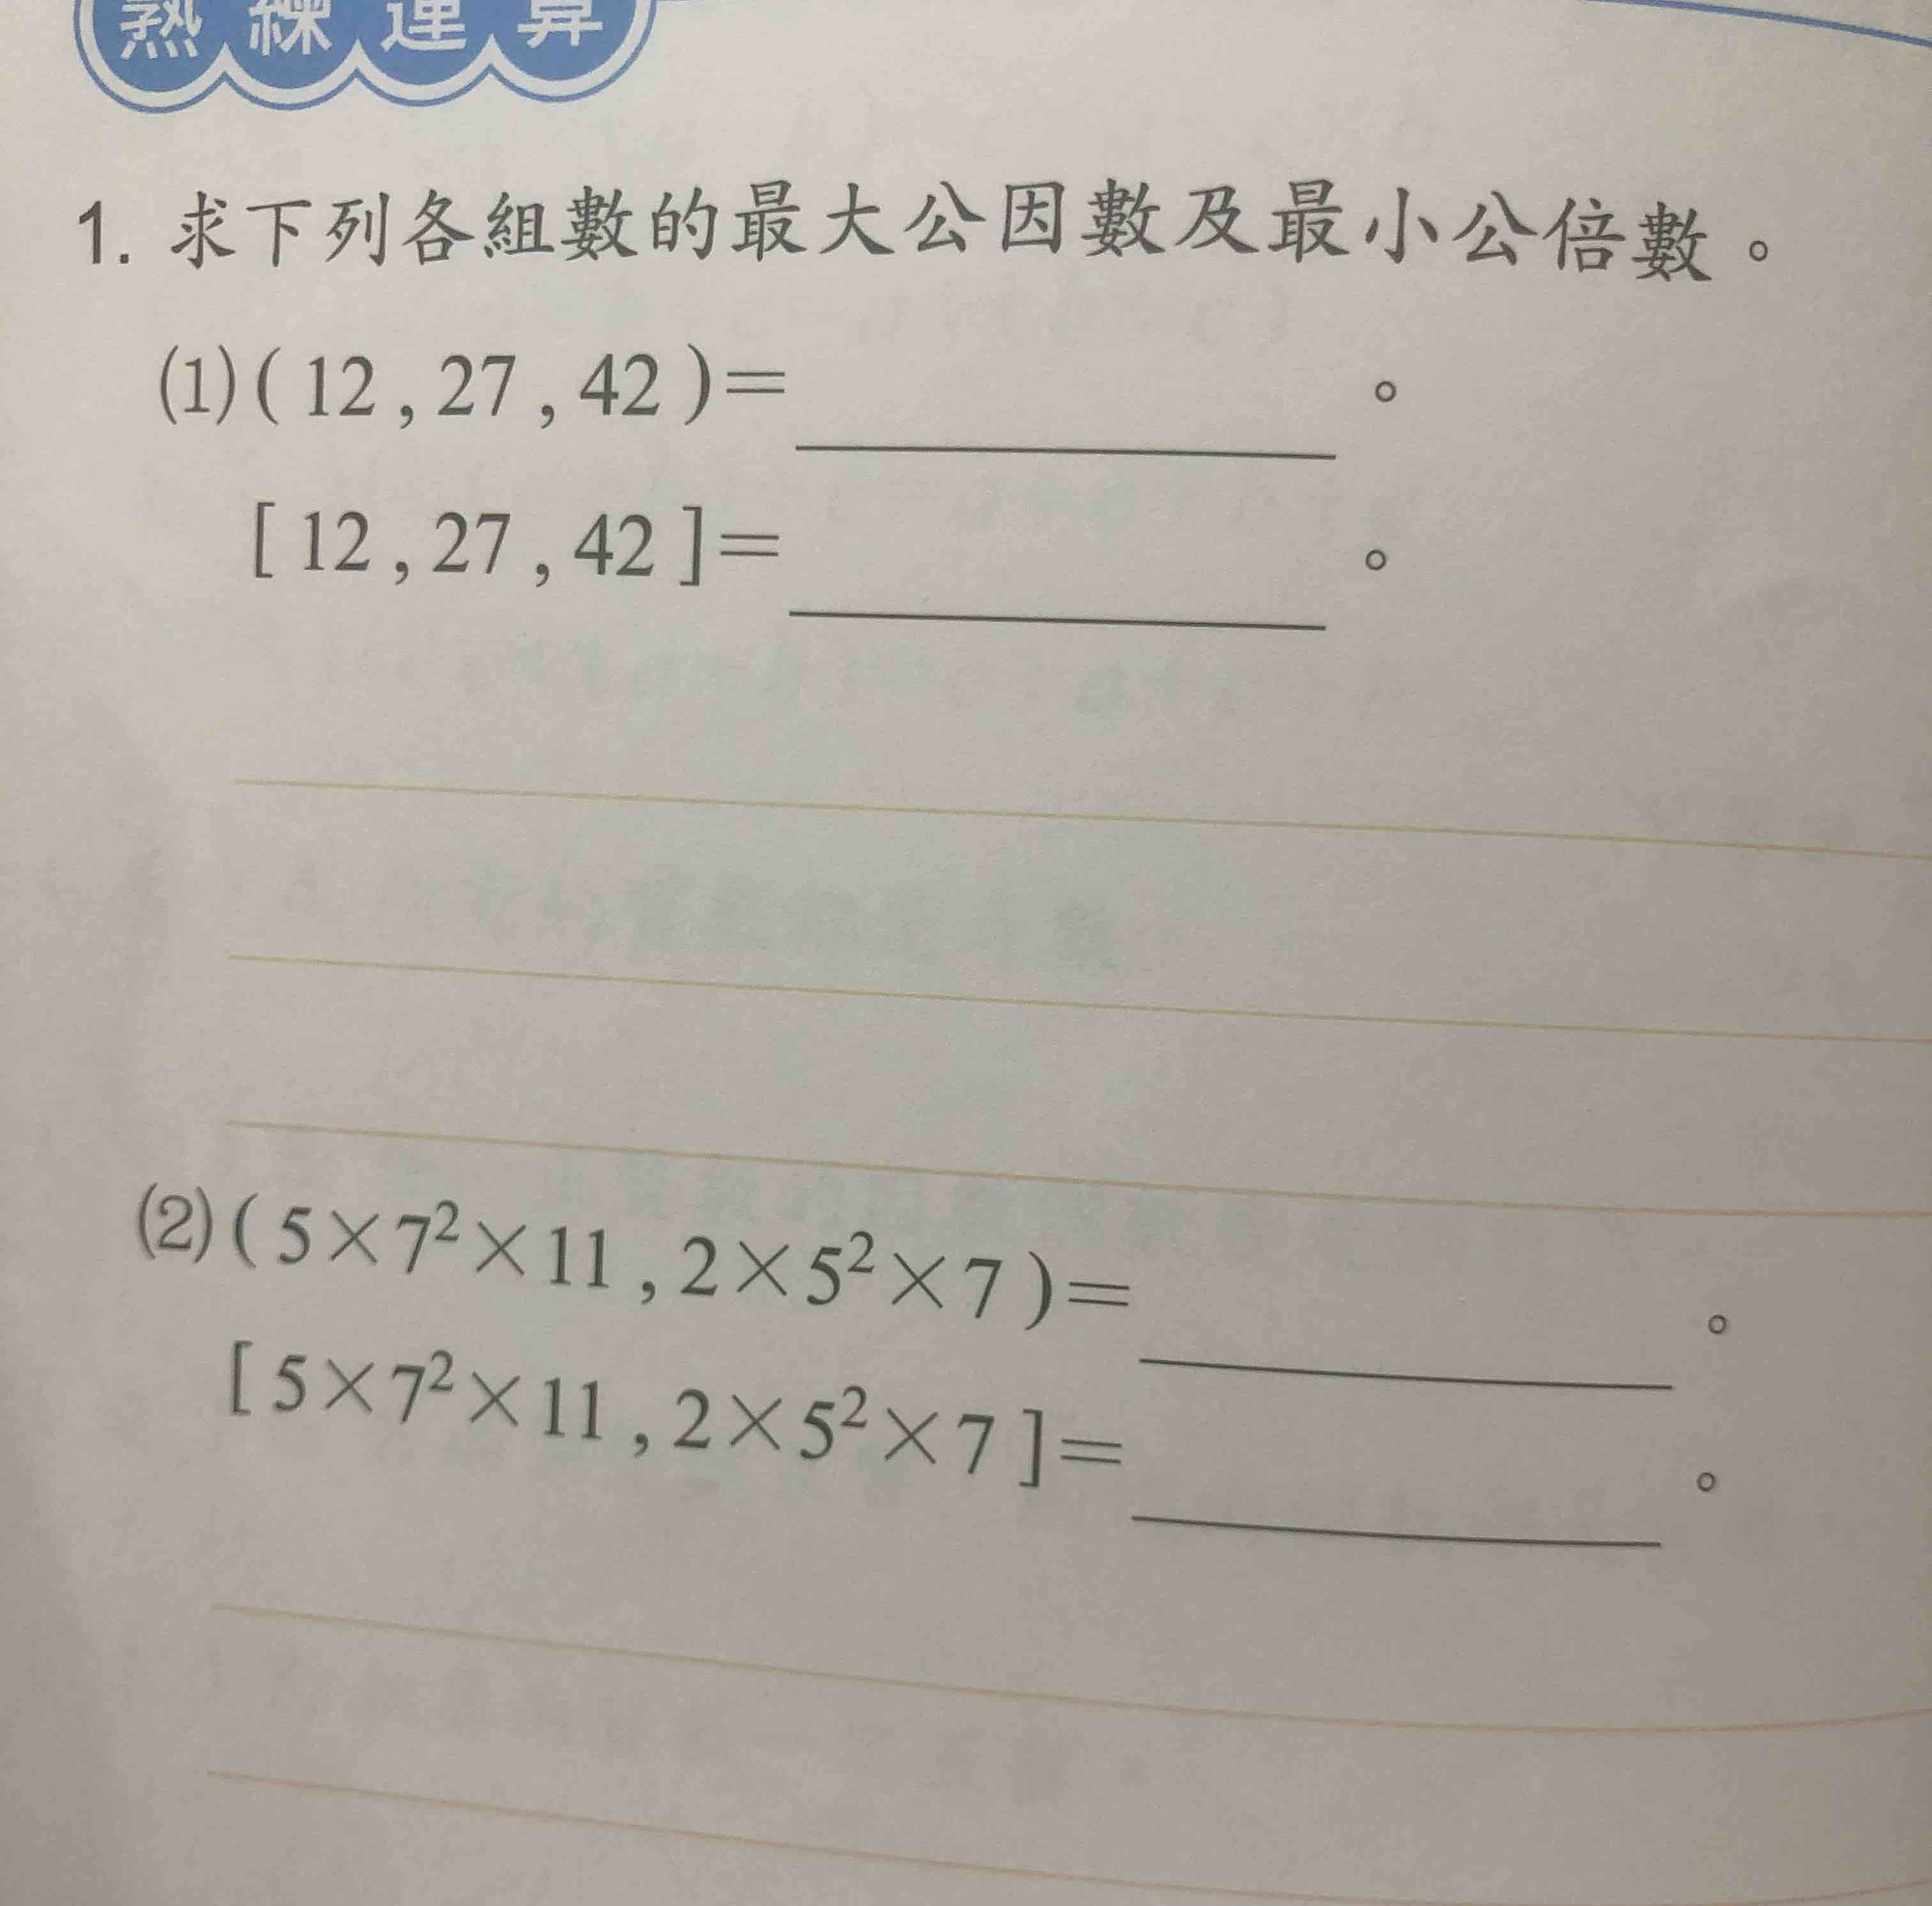 熟練運算
1. 求下列各組數的最大公因數及最小公倍數。
(1)( 12 , 27 , 42 )=＿＿＿＿。
[ 12 , 27 , 42 ]=＿＿＿＿。
(2)( 5×7²×11 , 2×5²×7 )=＿＿＿＿。
[ 5×7²×11 , 2×5²×7 ]=＿＿＿＿。